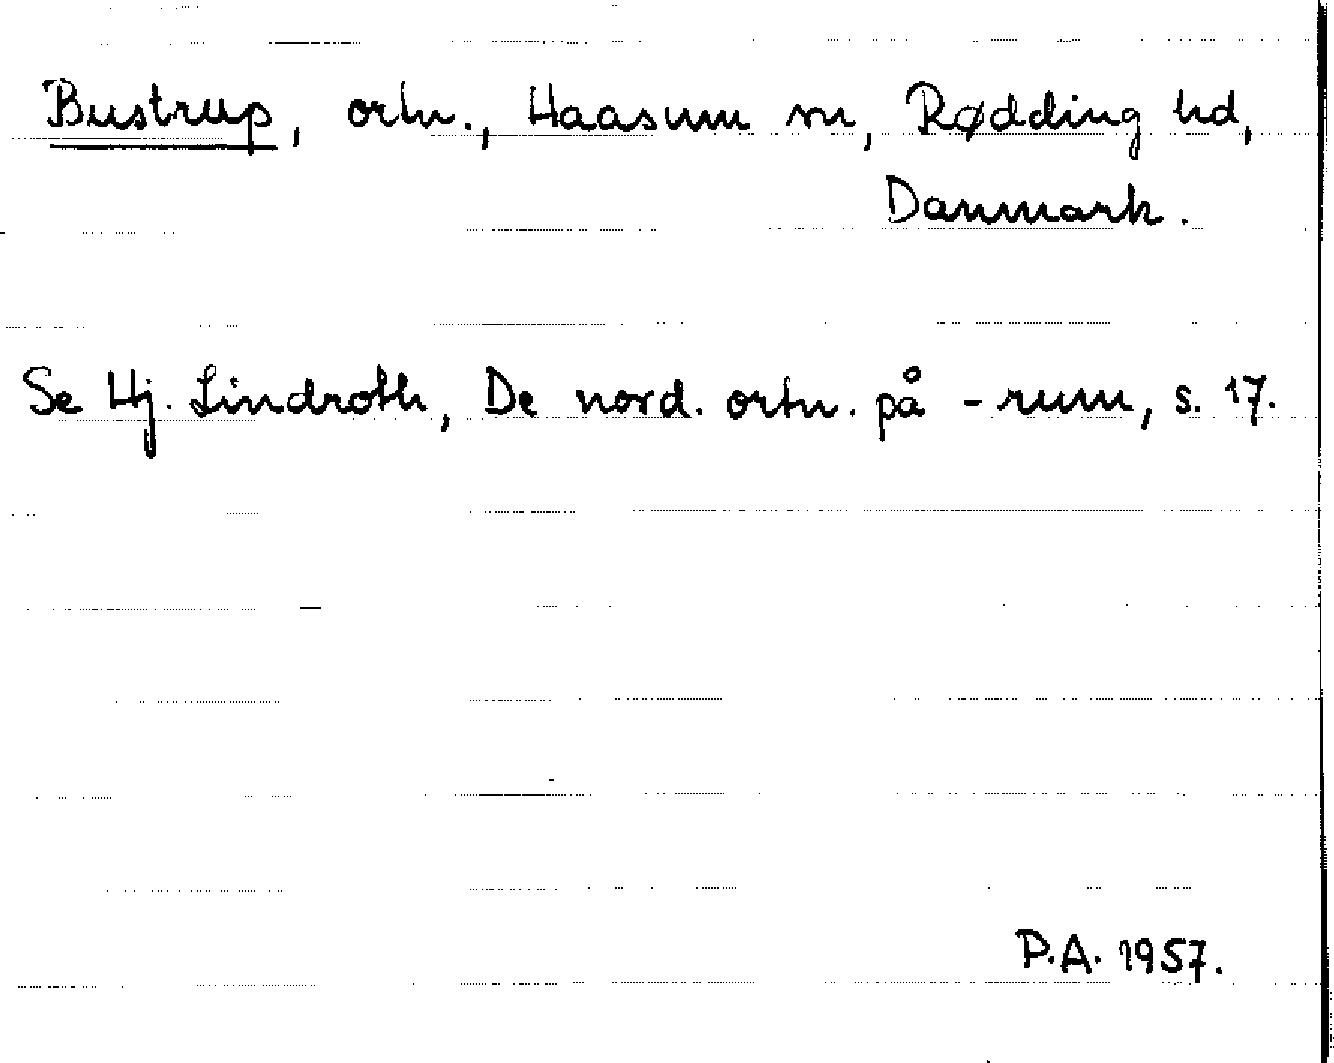 Bustrup, ortn., Haasum sn, Rødding hd,
Danmark.
Se Hj. Lindroth, De nord. ortn. på -rum, s. 17.
P.A. 1957.